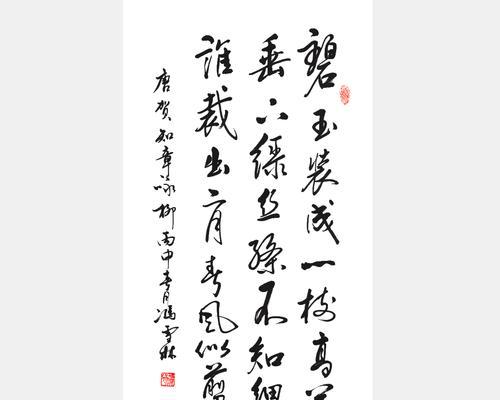 碧玉装成一树高
垂下绿丝绦不知细
谁裁出二月春风似剪
唐贺知章咏柳丙申春月冯雪林